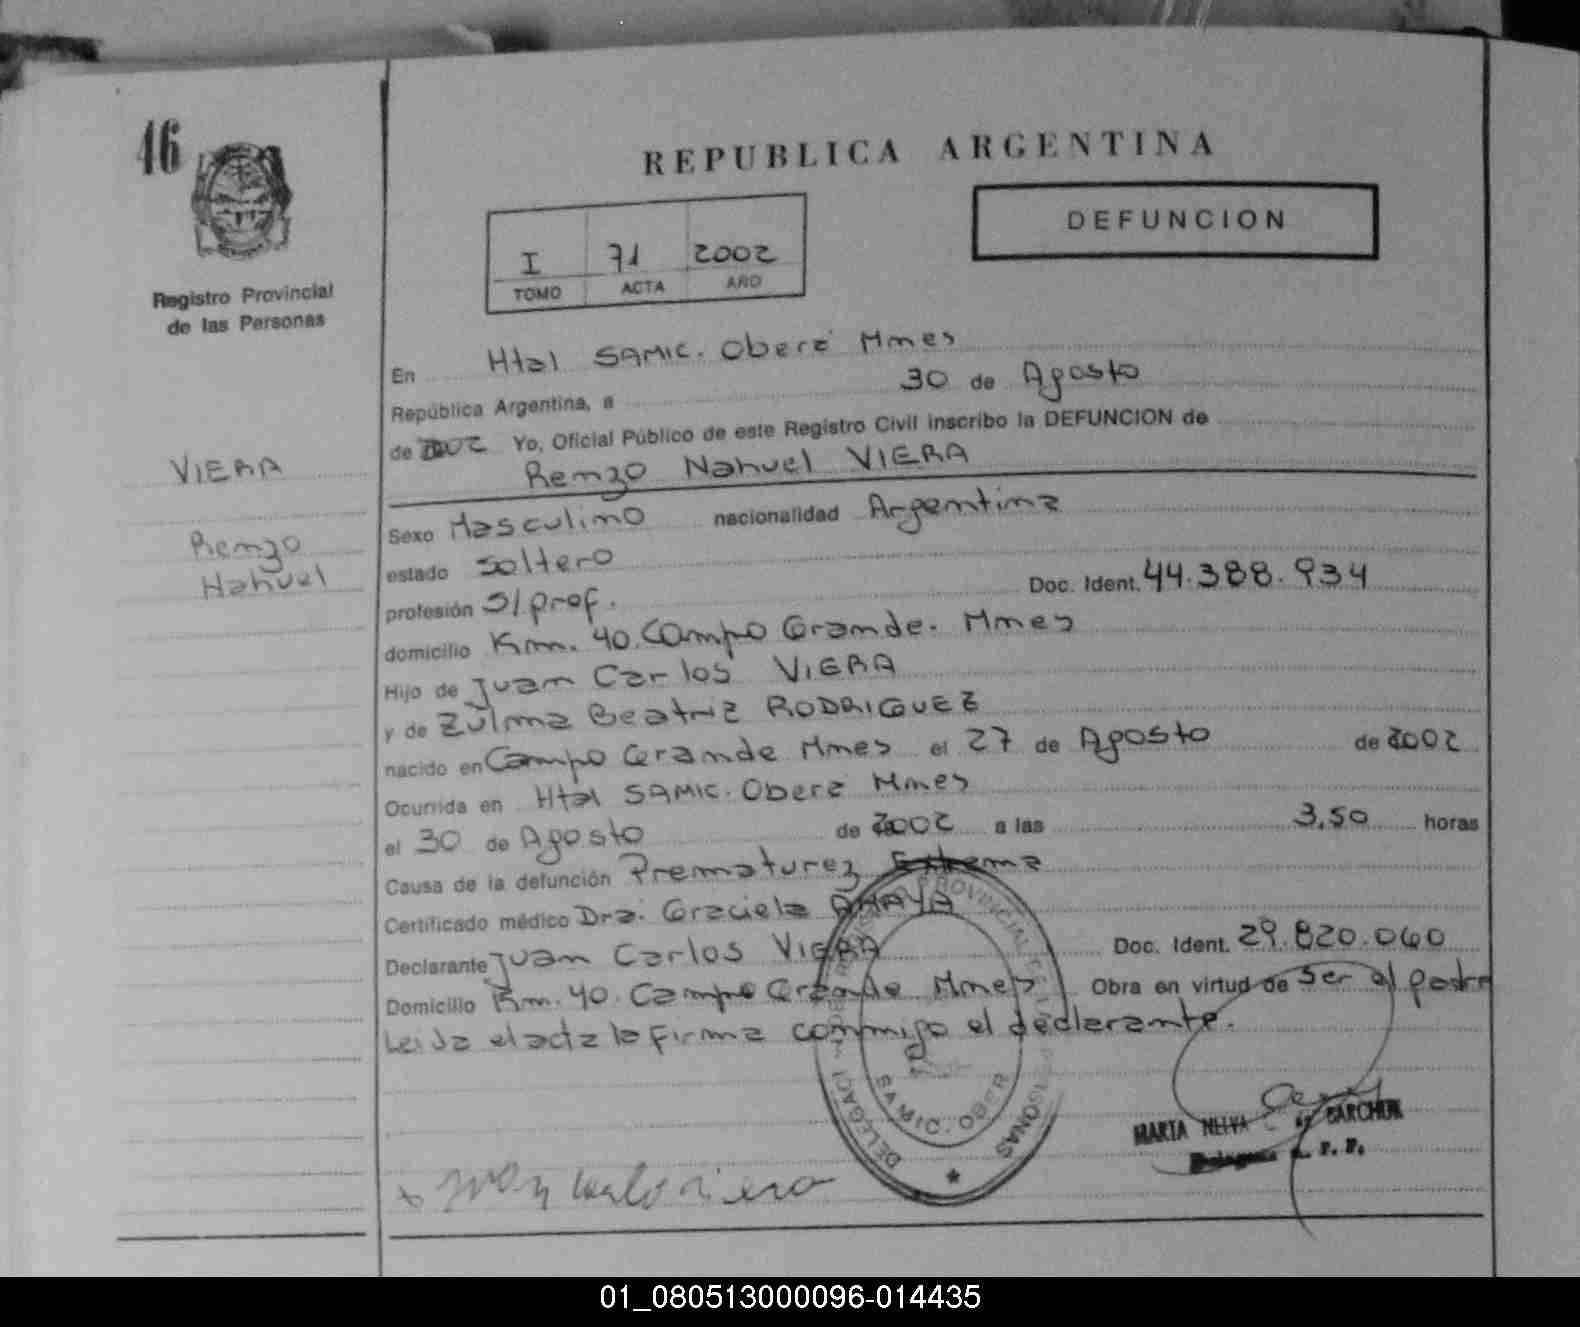 46
REPUBLICA ARGENTINA
DEFUNCION
I 71 2002
TOMO ACTA AÑO
Registro Provincial
de las Personas
En Htal SAMIC. Oberá Mnes
República Argentina, a 30 de Agosto
de 2002 Yo, Oficial Público de este Registro Civil inscribo la DEFUNCION de
Renzo Nahuel VIERA
VIERA
Renzo
Nahuel
Sexo Masculino nacionalidad Argentina
estado Soltero
profesión S/prof. Doc. Ident. 44.388.934
domicilio Km. 40. Campo Grande. Mnes
Hijo de Juan Carlos VIERA
y de Zulma Beatriz RODRIGUEZ
nacido en Campo Grande Mnes el 27 de Agosto de 2002
Ocurrida en Htal SAMIC. Oberá Mnes
el 30 de Agosto de 2002 a las 3,50 horas
Causa de la defunción Prematurez Extrema
Certificado médico Dra. Graciela AMAYA
Declarante Juan Carlos VIERA Doc. Ident. 29.820.060
Domicilio Km. 40. Campo Grande Mnes Obra en virtud de ser el padre
Leida el acta la firma conmigo el declarante.
PROVINCIAL
PERSONAS
DELEGACI
SAMIC. OBER
MARTA NELVA de SARCHUK
Juan Carlos Viera
01_080513000096-014435